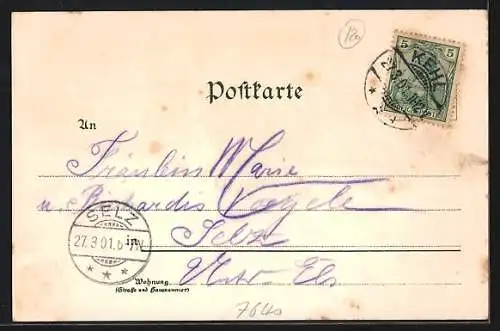 Postkarte
5 5
KEHL
An
Fräulein Marie
u. Richardis Voegele
SELZ
27.3.01.
Selz
in
Unter-Els
Wohnung
(Straße und Hausnummer)
7640